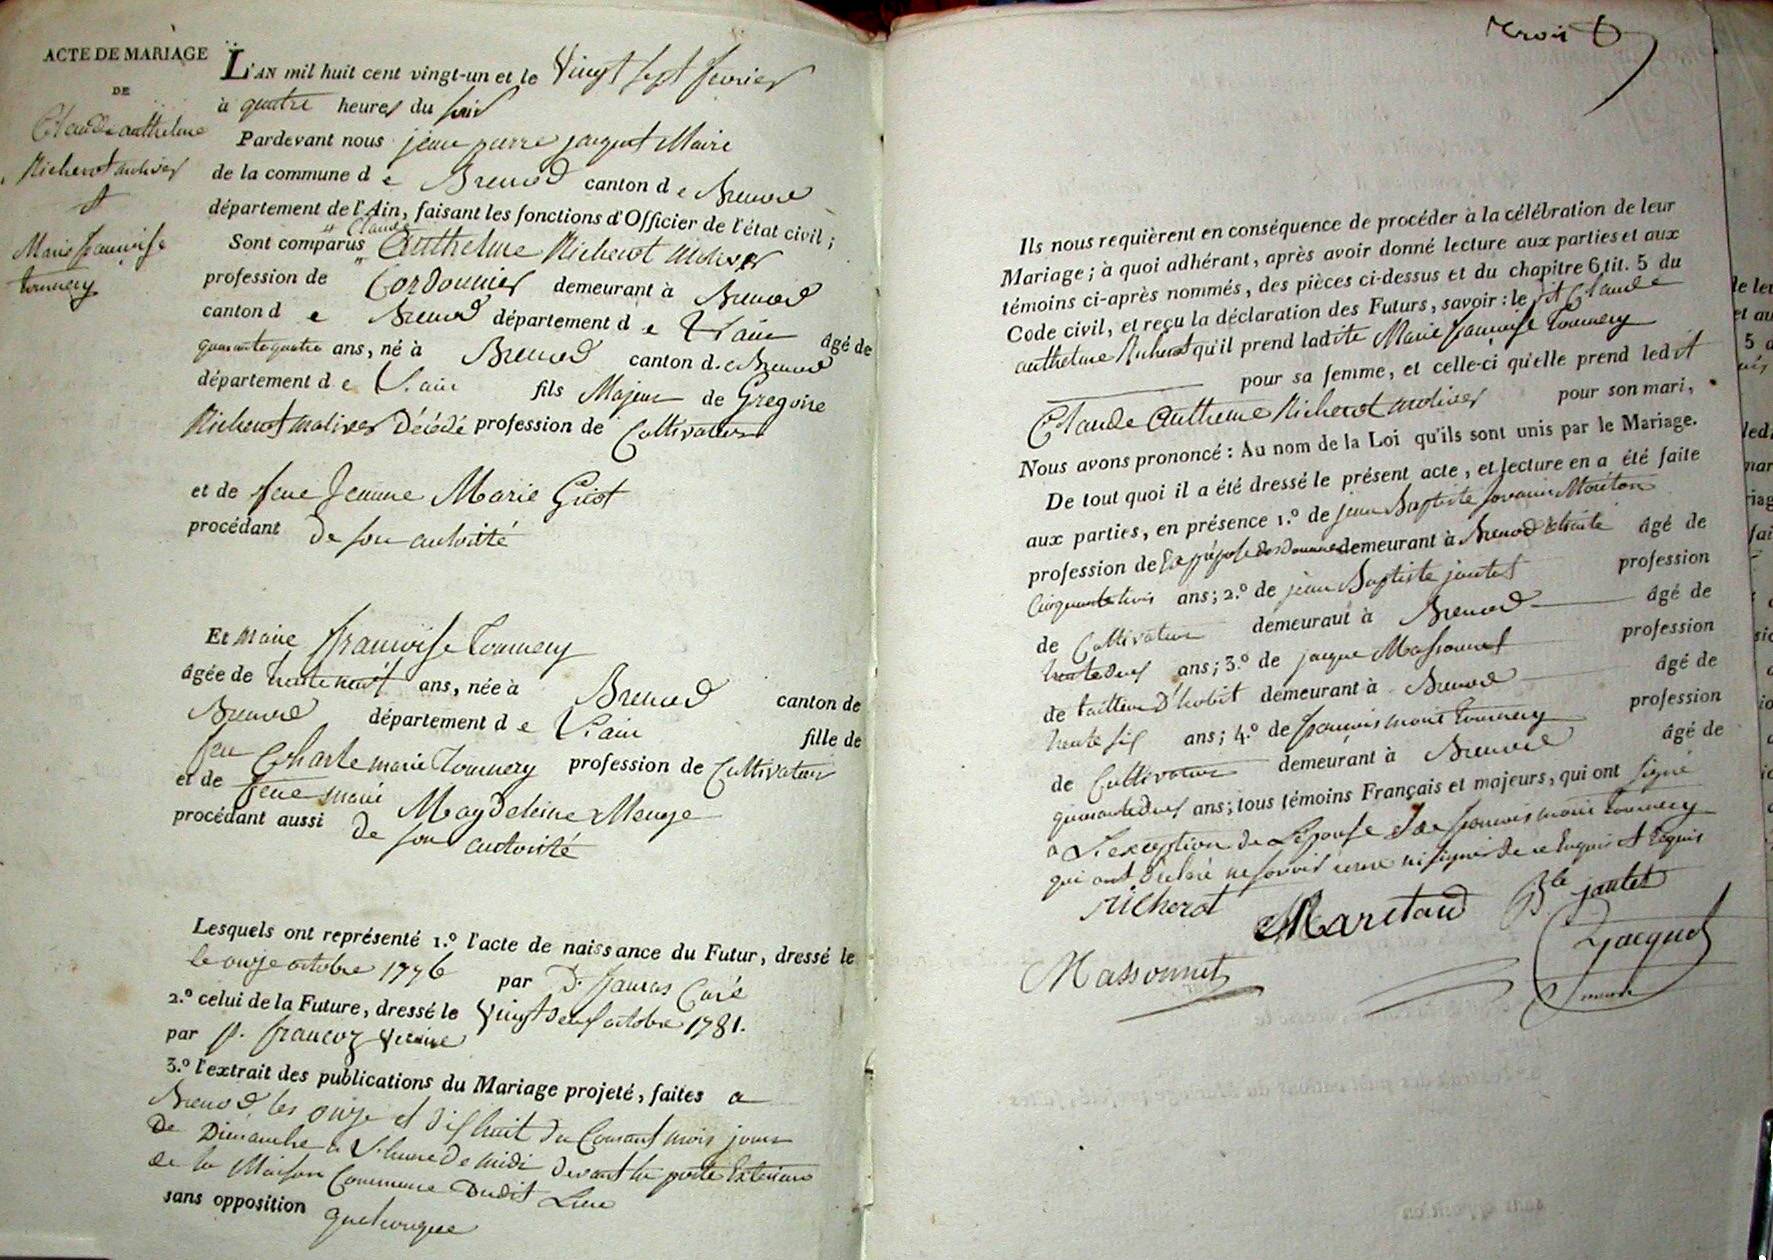 ACTE DE MARIAGE
DE
Claude anthelme
Richerot molivet
et
Marie françoise
tournery
L'AN mil huit cent vingt-un et le vingt sept fevrier
à quatre heures du soir
Pardevant nous jean pierre jacquet Maire
de la commune de Brenod canton de Brenod
département de l'Ain, faisant les fonctions d'Officier de l'état civil;
Claude
Sont comparus Anthelme Richerot
profession de Cordonnier demeurant à Brenod
canton de Brenod département de L'ain âgé de
quarante quatre ans, né à Brenod canton de Brenod
département de L'ain fils Majeur de Gregoire
Richerot Décédé profession de Cultivateur
et de feue Jeanne Marie
procédant de son autorité
Et Marie françoise Tournery
âgée de trente neuf ans, née à Brenod canton de
Brenod département de L'ain fille de
feu Charle marie Tournery profession de Cultivateur
et de feue marie Magdeleine
procédant aussi de son autorité
Lesquels ont représenté 1.º l'acte de naissance du Futur, dressé le
le onze octobre 1776 par D. Curé
2.º celui de la Future, dressé le vingt deux octobre 1781.
par p. francoz vicaire
3.º l'extrait des publications du Mariage projeté, faites a
Brenod les onze et dix huit du Courant mois jours
de Dimanche a L'heure de midi devant la porte Exterieure
de la Maison Commune dudit Lieu
sans opposition quelconque
trois
Ils nous requièrent en conséquence de procéder à la célébration de leur
Mariage; à quoi adhérant, après avoir donné lecture aux parties et aux
témoins ci-après nommés, des pièces ci-dessus et du chapitre 6, tit. 5 du
Code civil, et reçu la déclaration des Futurs, savoir: le dit Claude
anthelme Richerot qu'il prend ladite Marie françoise Tournery
pour sa femme, et celle-ci qu'elle prend ledit
Claude Anthelme Richerot pour son mari,
Nous avons prononcé: Au nom de la Loi qu'ils sont unis par le Mariage.
De tout quoi il a été dressé le présent acte, et lecture en a été faite
aux parties, en présence 1.º de jean Baptiste
profession de Ex préposé des Douanes demeurant à Brenod âgé de
Cinquante trois ans; 2.º de jean Baptiste jantet profession
de Cultivateur demeurant à Brenod âgé de
trente deux ans; 3.º de jacque Massonnet profession
de tailleur D'habit demeurant à Brenod âgé de
trente six ans; 4.º de françois marie tournery profession
de Cultivateur demeurant à Brenod âgé de
quarante deux ans; tous témoins Français et majeurs, qui ont signé
a L'exception de L'épouse et de françois marie tournery
qui ont déclaré ne savoir ecrire ni signer de ce Enquis et Requis
richerot Maretand Bte jantet
Massonnet Jacquet
maire